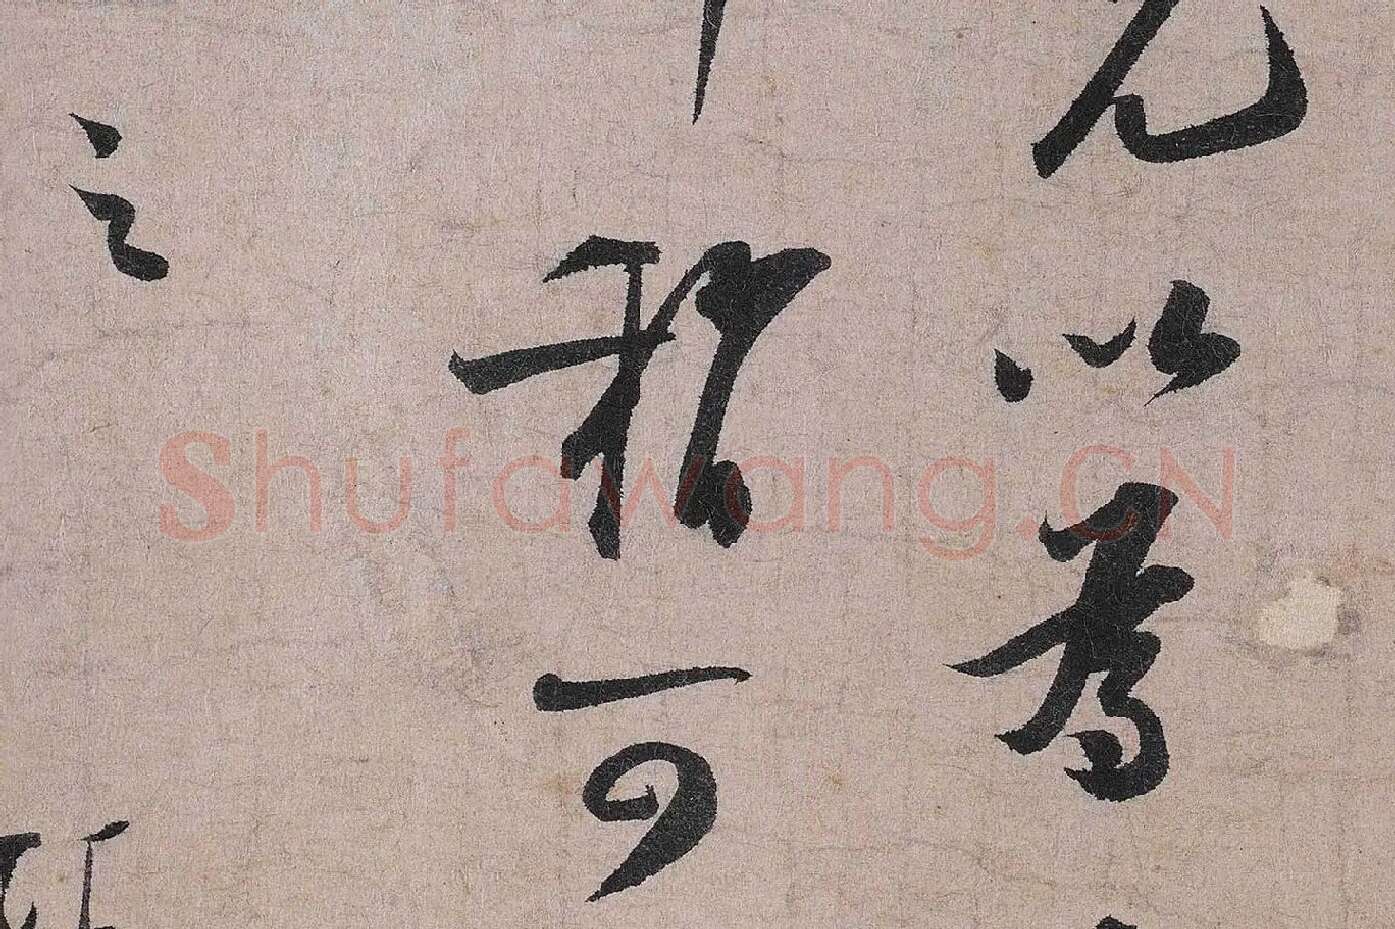 以為
稍可
之
Shufawang.CN